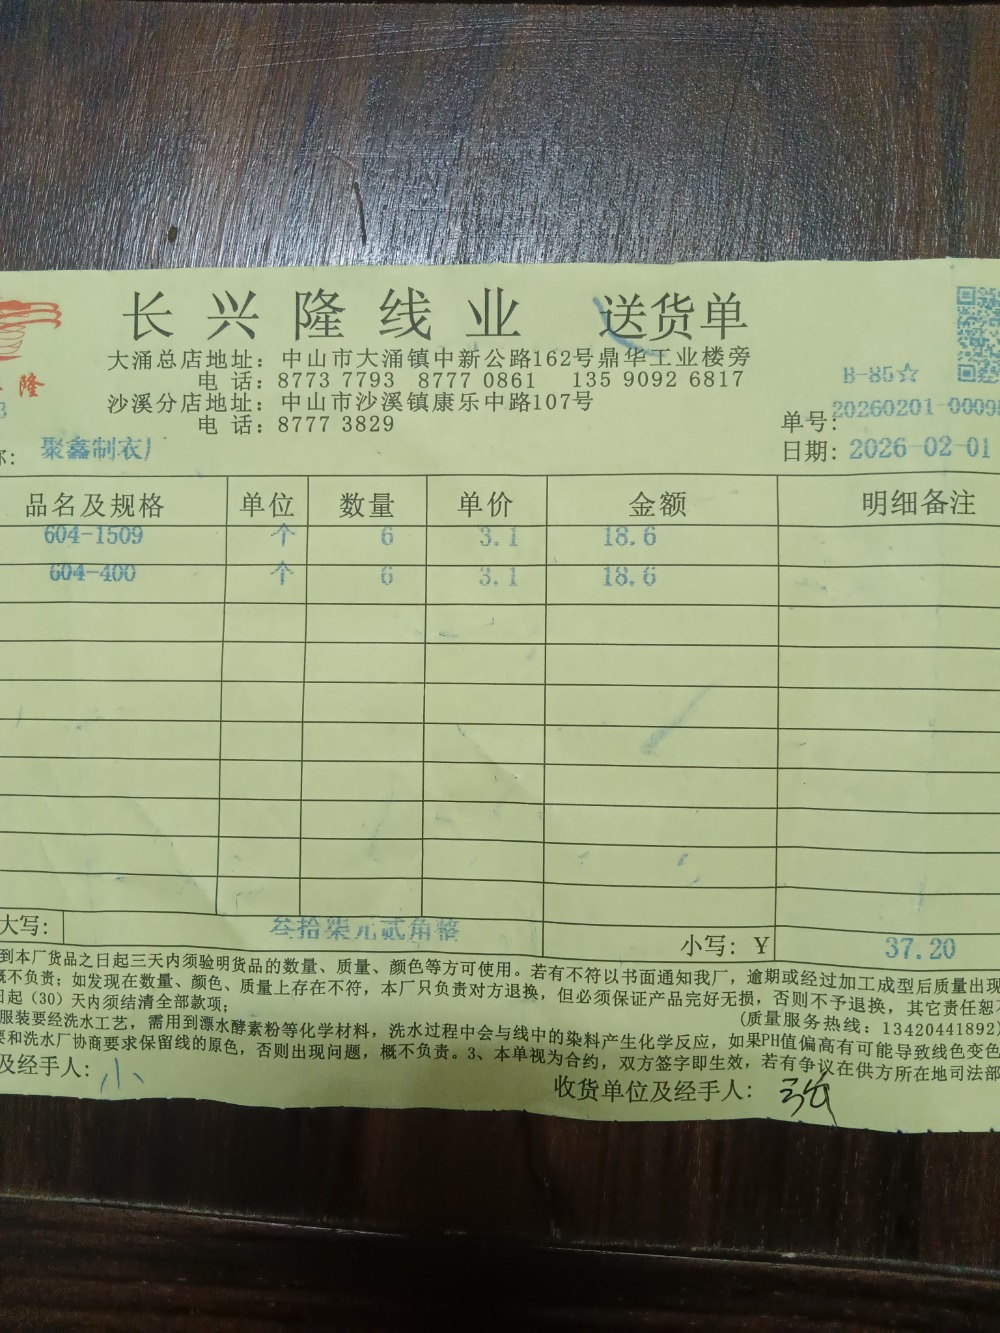 长兴隆线业 送货单
隆
大涌总店地址：中山市大涌镇中新公路162号鼎华工业楼旁
电 话：8773 7793 8777 0861 135 9092 6817
沙溪分店地址：中山市沙溪镇康乐中路107号
电 话：8777 3829
B-85☆
单号：20260201-0009
日期：2026-02-01
称： 聚鑫制衣厂
品名及规格 单位 数量 单价 金额 明细备注
604-1509 个 6 3.1 18.6
604-400 个 6 3.1 18.6
大写： 叁拾柒元贰角整 小写：￥ 37.20
到本厂货品之日起三天内须验明货品的数量、质量、颜色等方可使用。若有不符以书面通知我厂，逾期或经过加工成型后质量出现
概不负责；如发现在数量、颜色、质量上存在不符，本厂只负责对方退换，但必须保证产品完好无损，否则不予退换，其它责任恕不
日起（30）天内须结清全部款项；
(质量服务热线：13420441892)
服装要经洗水工艺，需用到漂水酵素粉等化学材料，洗水过程中会与线中的染料产生化学反应，如果PH值偏高有可能导致线色变色
要和洗水厂协商要求保留线的原色，否则出现问题，概不负责。3、本单视为合约，双方签字即生效，若有争议在供方所在地司法部
及经手人：小
收货单位及经手人：张